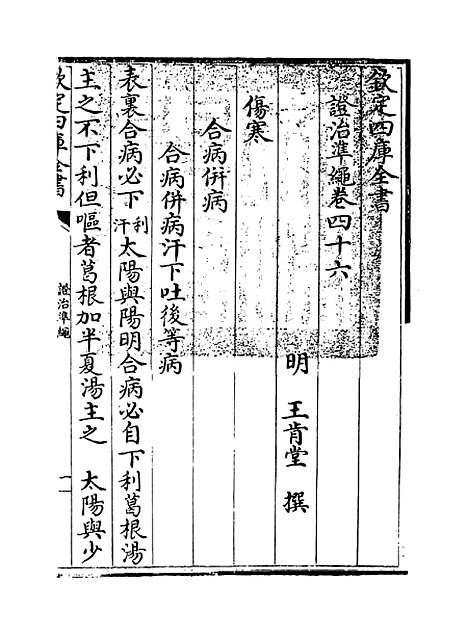 欽定四庫全書
證治準繩卷四十六
明 王肯堂 撰
傷寒
合病併病
合病併病汗下吐後等病
表裏合病必下利汗太陽與陽明合病必自下利葛根湯
主之不下利但嘔者葛根加半夏湯主之 太陽與少
欽定四庫全書
證治準繩
一